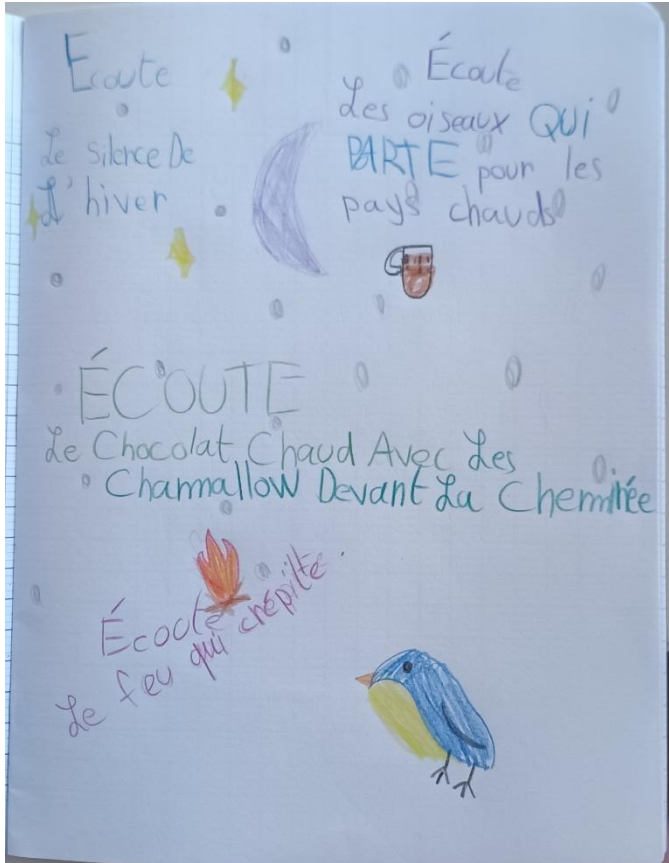 Ecoute
Le silence De
L'hiver
Écoute
Les oiseaux QUi
PARTE pour les
pays chauds
ÉCOUTE
Le Chocolat Chaud Avec Les
Chamallow Devant La Cheminée
Écoute
Le feu qui crépite.